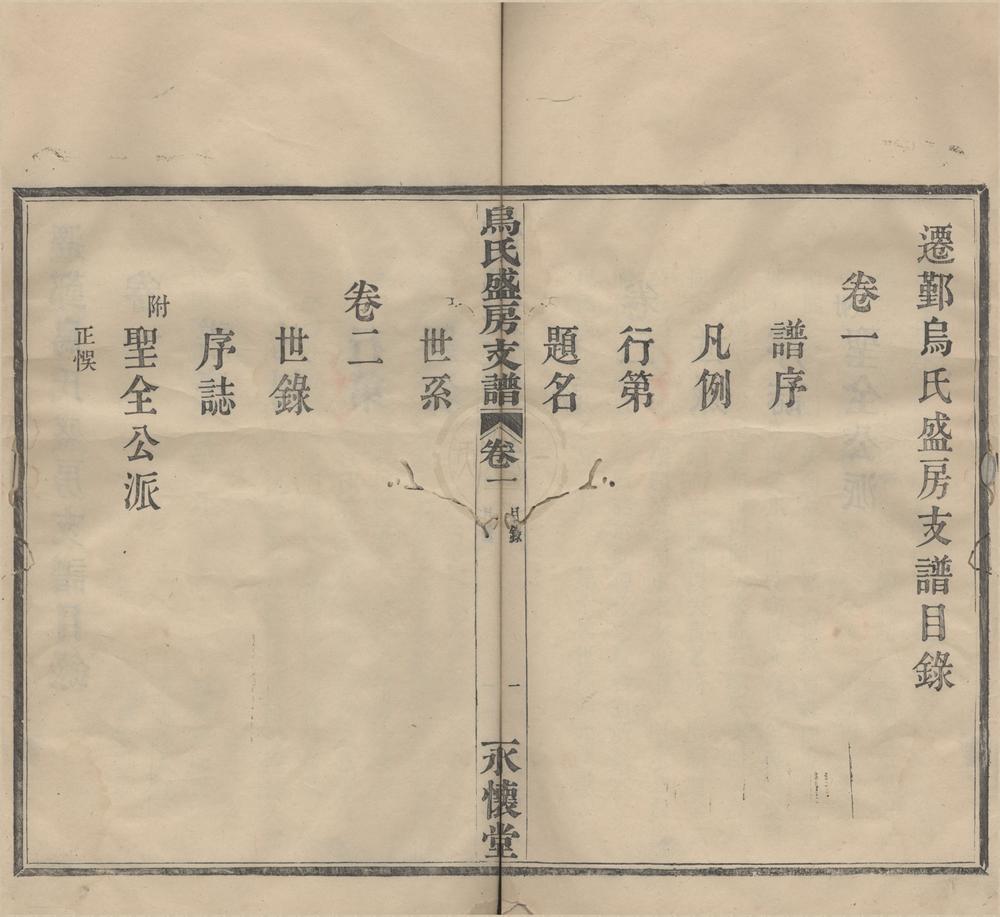 遷鄞烏氏盛房支譜目錄
卷一
譜序
凡例
行第
題名
烏氏盛房支譜 卷一 目錄 一 永懷堂
世系
卷二
世錄
序誌
附聖全公派
正悞